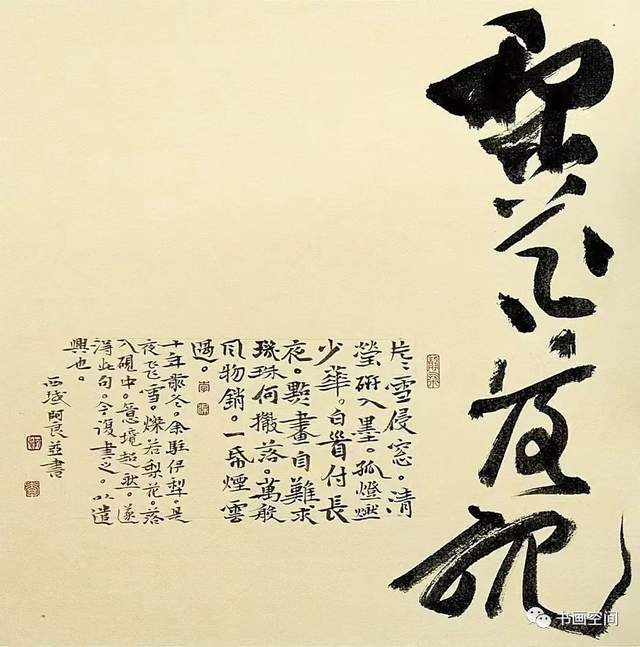 梨花落硯
片〻雪侵窓。清
瑩硏入墨。孤燈燃
少華。白首付長
夜。點畫自難求
璣珠何撒落。萬般
風物銷。一帋煙雲
過。
十年歬冬。余駐伊犁。是
夜飞雪。燦若梨花。落
入硯中。意境超然。遂
得此句。今復書之。以遣
興也。
西域阿良並書
书画空间